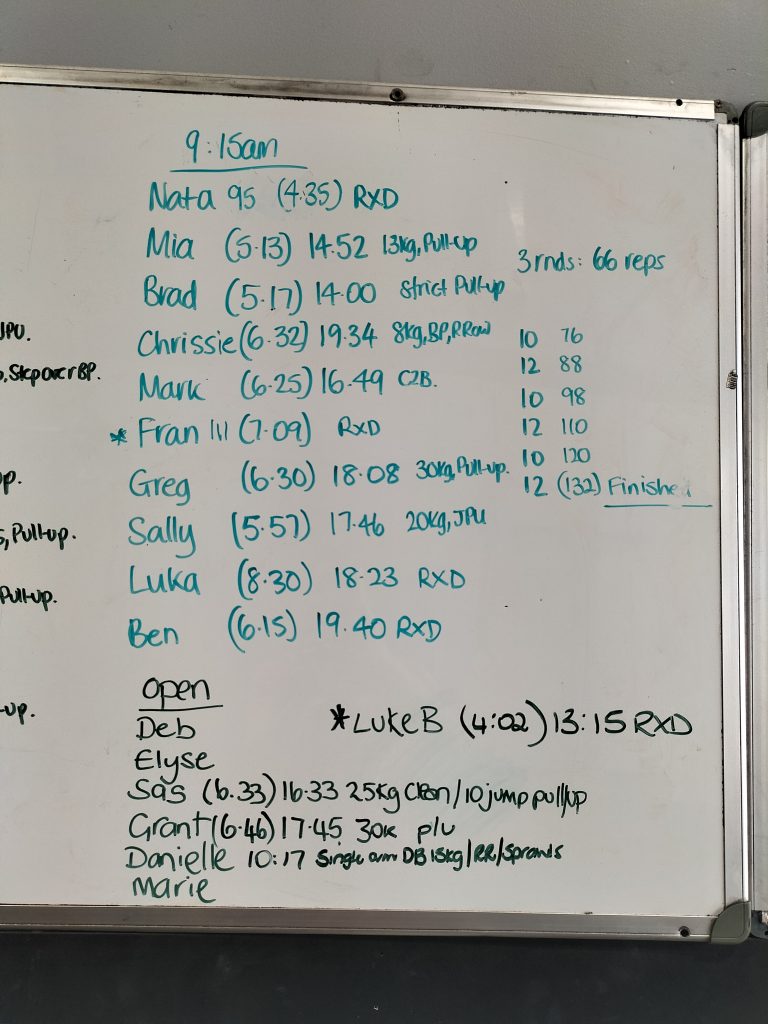 9:15am
Nata 95 (4.35) RXD
Mia (5.13) 14.52 13kg, Pull-up
Brad (5.17) 14.00 Strict Pull-up
Chrissie (6.32) 19.34 8kg, BP, RRow
Mark (6.25) 16.49 C2B.
* Fran 111 (7.09) RXD
Greg (6.30) 18.08 30kg, Pull-up.
Sally (5.57) 17.46 20kg, JPU
Luka (8.30) 18.23 RXD
Ben (6.15) 19.40 RXD
3 rnds: 66 reps
10 76
12 88
10 98
12 110
10 120
12 (132) Finished
Open
Deb
Elyse
Sas (6.33) 16.33 25kg Clean/10 jump pull/up
Grant (6.46) 17.45 30k p/u
Danielle 10:17 Single arm DB 15kg/RR/Sprawls
Marie
*Luke B (4:02) 13:15 RXD
JPU.
, Stepover BP.
p.
, Pull-up.
Pull-up.
-up.